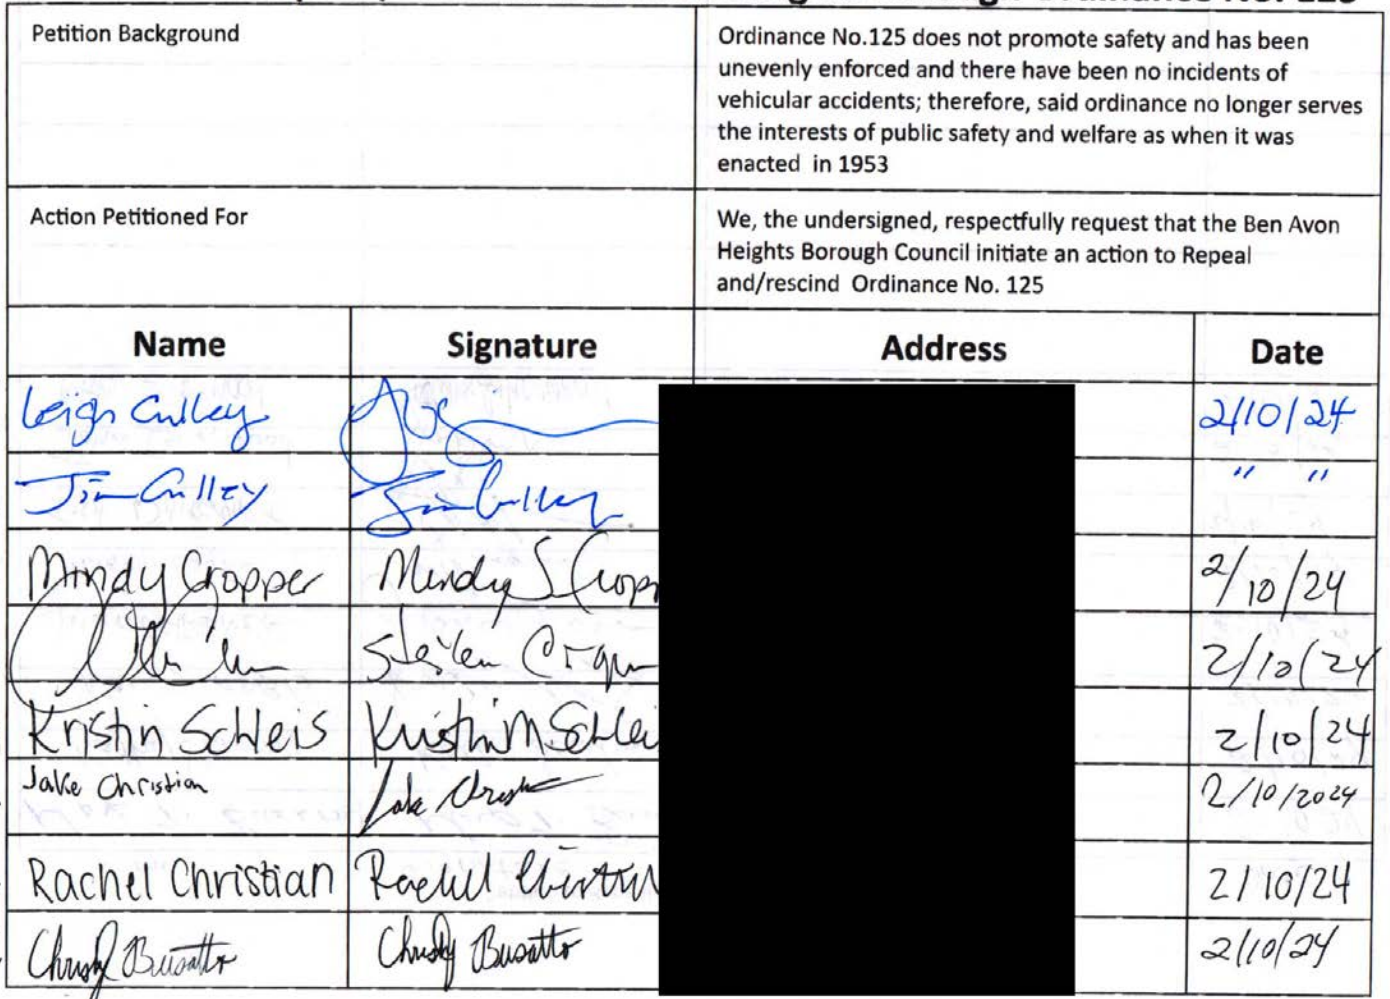 Ordinance No. 125
Petition Background
Ordinance No.125 does not promote safety and has been
unevenly enforced and there have been no incidents of
vehicular accidents; therefore, said ordinance no longer serves
the interests of public safety and welfare as when it was
enacted in 1953
Action Petitioned For
We, the undersigned, respectfully request that the Ben Avon
Heights Borough Council initiate an action to Repeal
and/rescind Ordinance No. 125
Name Signature Address Date
Leigh Culley 2/10/24
Jim Culley Jim Culley " "
Mindy Cropper Mindy S Cropp 2/10/24
Steven 2/10/24
Kristin Schleis Kristin M Schlei 2/10/24
Jake Christian Jake 2/10/2024
Rachel Christian Rachel 2/10/24
Christy Busatto Christy Busatto 2/10/24